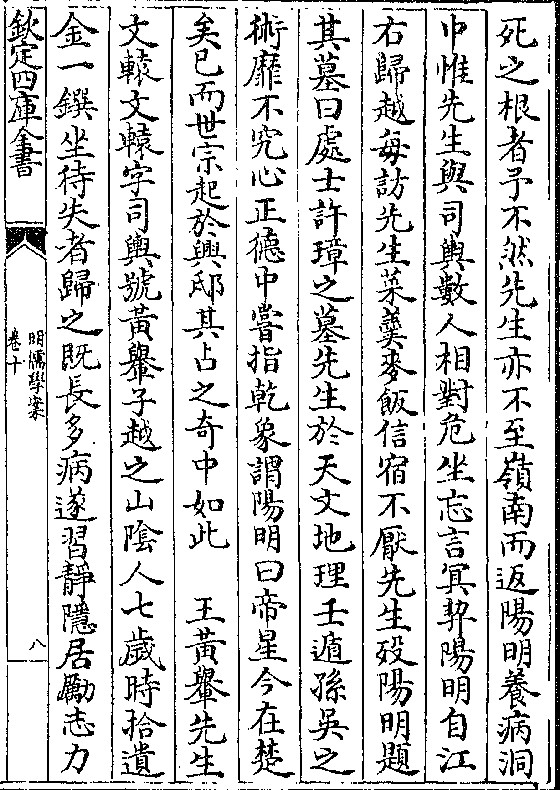 死之根者予不然先生亦不至嶺南而返陽明養病洞
中惟先生與司輿數人相對危坐忘言冥契陽明自江
右歸越每訪先生菜羹麥飯信宿不厭先生殁陽明題
其墓曰處士許璋之墓先生於天文地理壬遁孫吳之
術靡不究心正德中嘗指乾象謂陽明曰帝星今在楚
矣已而世宗起於興邸其占之奇中如此 王黃轝先生
文轅文轅字司輿號黃轝子越之山隂人七歲時拾遺
金一鐉坐待失者歸之既長多病遂習靜隱居勵志力
欽定四庫全書
明儒學案
卷十
八